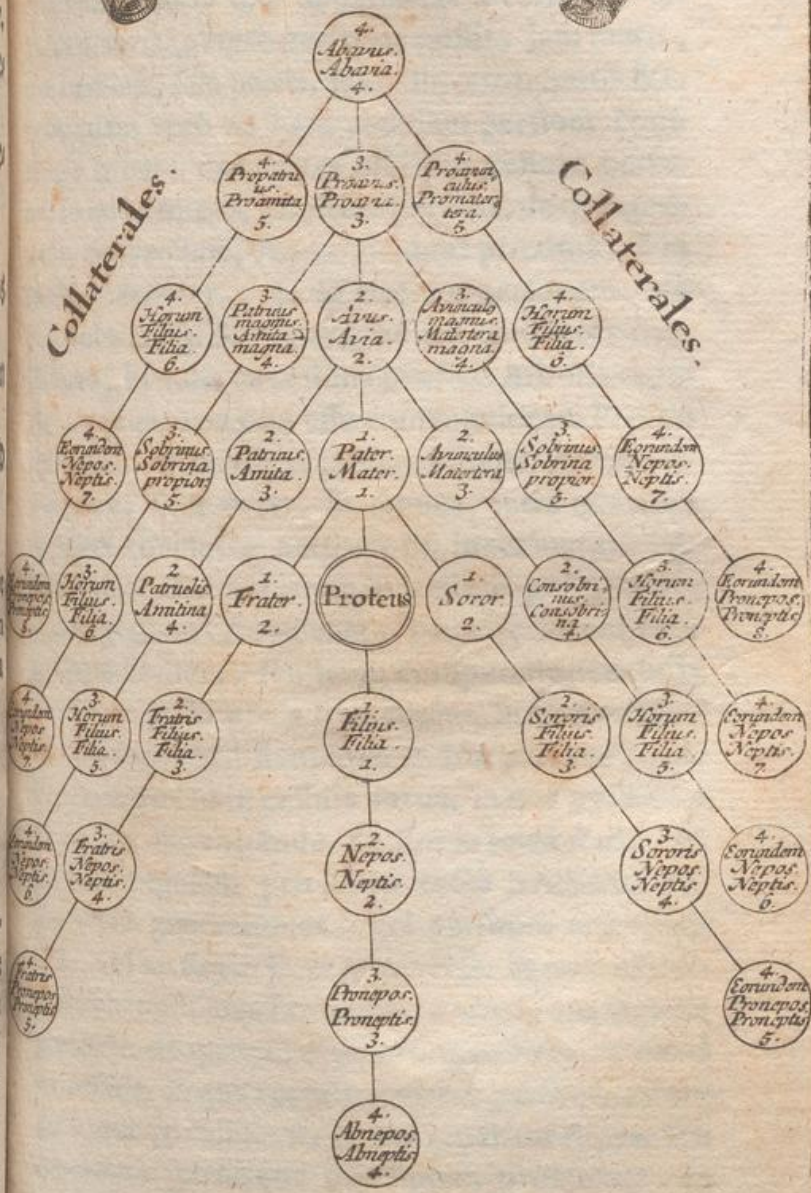 4.
Abavus.
Abavia.
4.
Collaterales.
Collaterales.
4.
Propatru
us.
Proamita
5.
3.
Proavus.
Proavia.
3.
4.
Proavun
culus.
Promater
tera.
5
4.
Horum
Filius.
Filia.
6.
3.
Patruus
magnus.
Amita
magna.
4.
2.
Avus.
Avia.
2.
3.
Avunculg
magnus.
Matertera
magna.
4.
4.
Horum
Filius.
Filia.
6.
4.
Eorundem
Nepos.
Neptis.
7.
3.
Sobrinus.
Sobrina
propior.
5.
2.
Patruus.
Amita.
3.
1.
Pater.
Mater.
1.
2.
Avunculus
Matertera
3.
3.
Sobrinus.
Sobrina
propior.
5.
4.
Eorundem
Nepos.
Neptis.
7.
4.
Eorundem
Pronepos.
Proneptis
8.
3.
Horum
Filius.
Filia.
6
2
Patruelis
Amitina
4.
1.
Frater.
2.
Proteus
1.
Soror.
2.
2.
Consobri-
nus.
Consobri
na
4.
3.
Horum
Filius.
Filia.
6
4.
Eorundem
Pronepos.
Proneptis
8.
4.
Eorundem
Nepos
Neptis.
7.
3.
Horum
Filius.
Filia.
5.
2.
Fratris
Filius.
Filia.
3.
1.
Filius.
Filia.
1.
2.
Sororis
Filius.
Filia.
3
3.
Horum
Filius.
Filia.
5
4.
Eorundem
Nepos
Neptis.
7.
4.
Eorundem
Nepos.
Neptis.
6.
3.
Fratris
Nepos.
Neptis.
4.
2.
Nepos.
Neptis.
2.
3.
Sororis
Nepos.
Neptis.
4.
4.
Eorundem
Nepos.
Neptis.
6.
4.
Fratris
Pronepos
Proneptis
5.
3.
Pronepos.
Proneptis.
3.
4.
Eorundem
Pronepos.
Proneptis
5.
4.
Abnepos.
Abneptis
4.